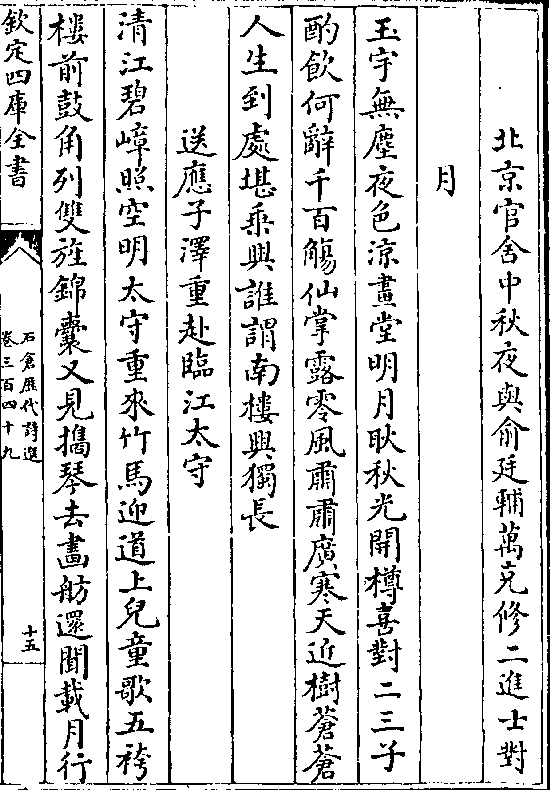 北京官舍中秋夜與俞廷輔萬克修二進士對
月
玉宇無塵夜色涼畫堂明月耿秋光開樽喜對二三子
酌飲何辭千百觴仙掌露零風肅肅廣寒天近樹蒼蒼
人生到處堪乘興誰謂南樓興獨長
送應子澤重赴臨江太守
清江碧嶂照空明太守重來竹馬迎道上兒童歌五袴
樓前鼓角列雙旌錦囊又見攜琴去畫舫還聞載月行
欽定四庫全書
石倉歷代詩選
卷三百四十九
十五